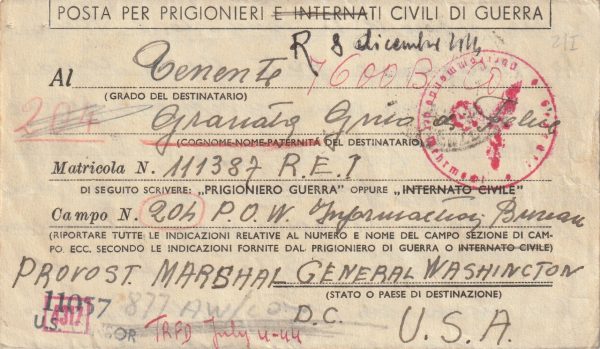 POSTA PER PRIGIONIERI E INTERNATI CIVILI DI GUERRA
R 8 dicembre 44
Al Tenente 7600B
(GRADO DEL DESTINATARIO)
204 Granata di
(COGNOME-NOME-PATERNITÀ DEL DESTINATARIO)
Matricola N. 111387 R.E.I
DI SEGUITO SCRIVERE: „PRIGIONIERO GUERRA" OPPURE „INTERNATO CIVILE"
Campo N. 204 P.O.W. Information Bureau
(RIPORTARE TUTTE LE INDICAZIONI RELATIVE AL NUMERO E NOME DEL CAMPO SEZIONE DI CAM-
PO ECC. SECONDO LE INDICAZIONI FORNITE DAL PRIGIONIERO DI GUERRA O INTERNATO CIVILE)
PROVOST. MARSHAL GENERAL WASHINGTON
(STATO O PAESE DI DESTINAZIONE)
11057 877 AW/
D.C. U.S.A.
U.S. TRFD July 4-44